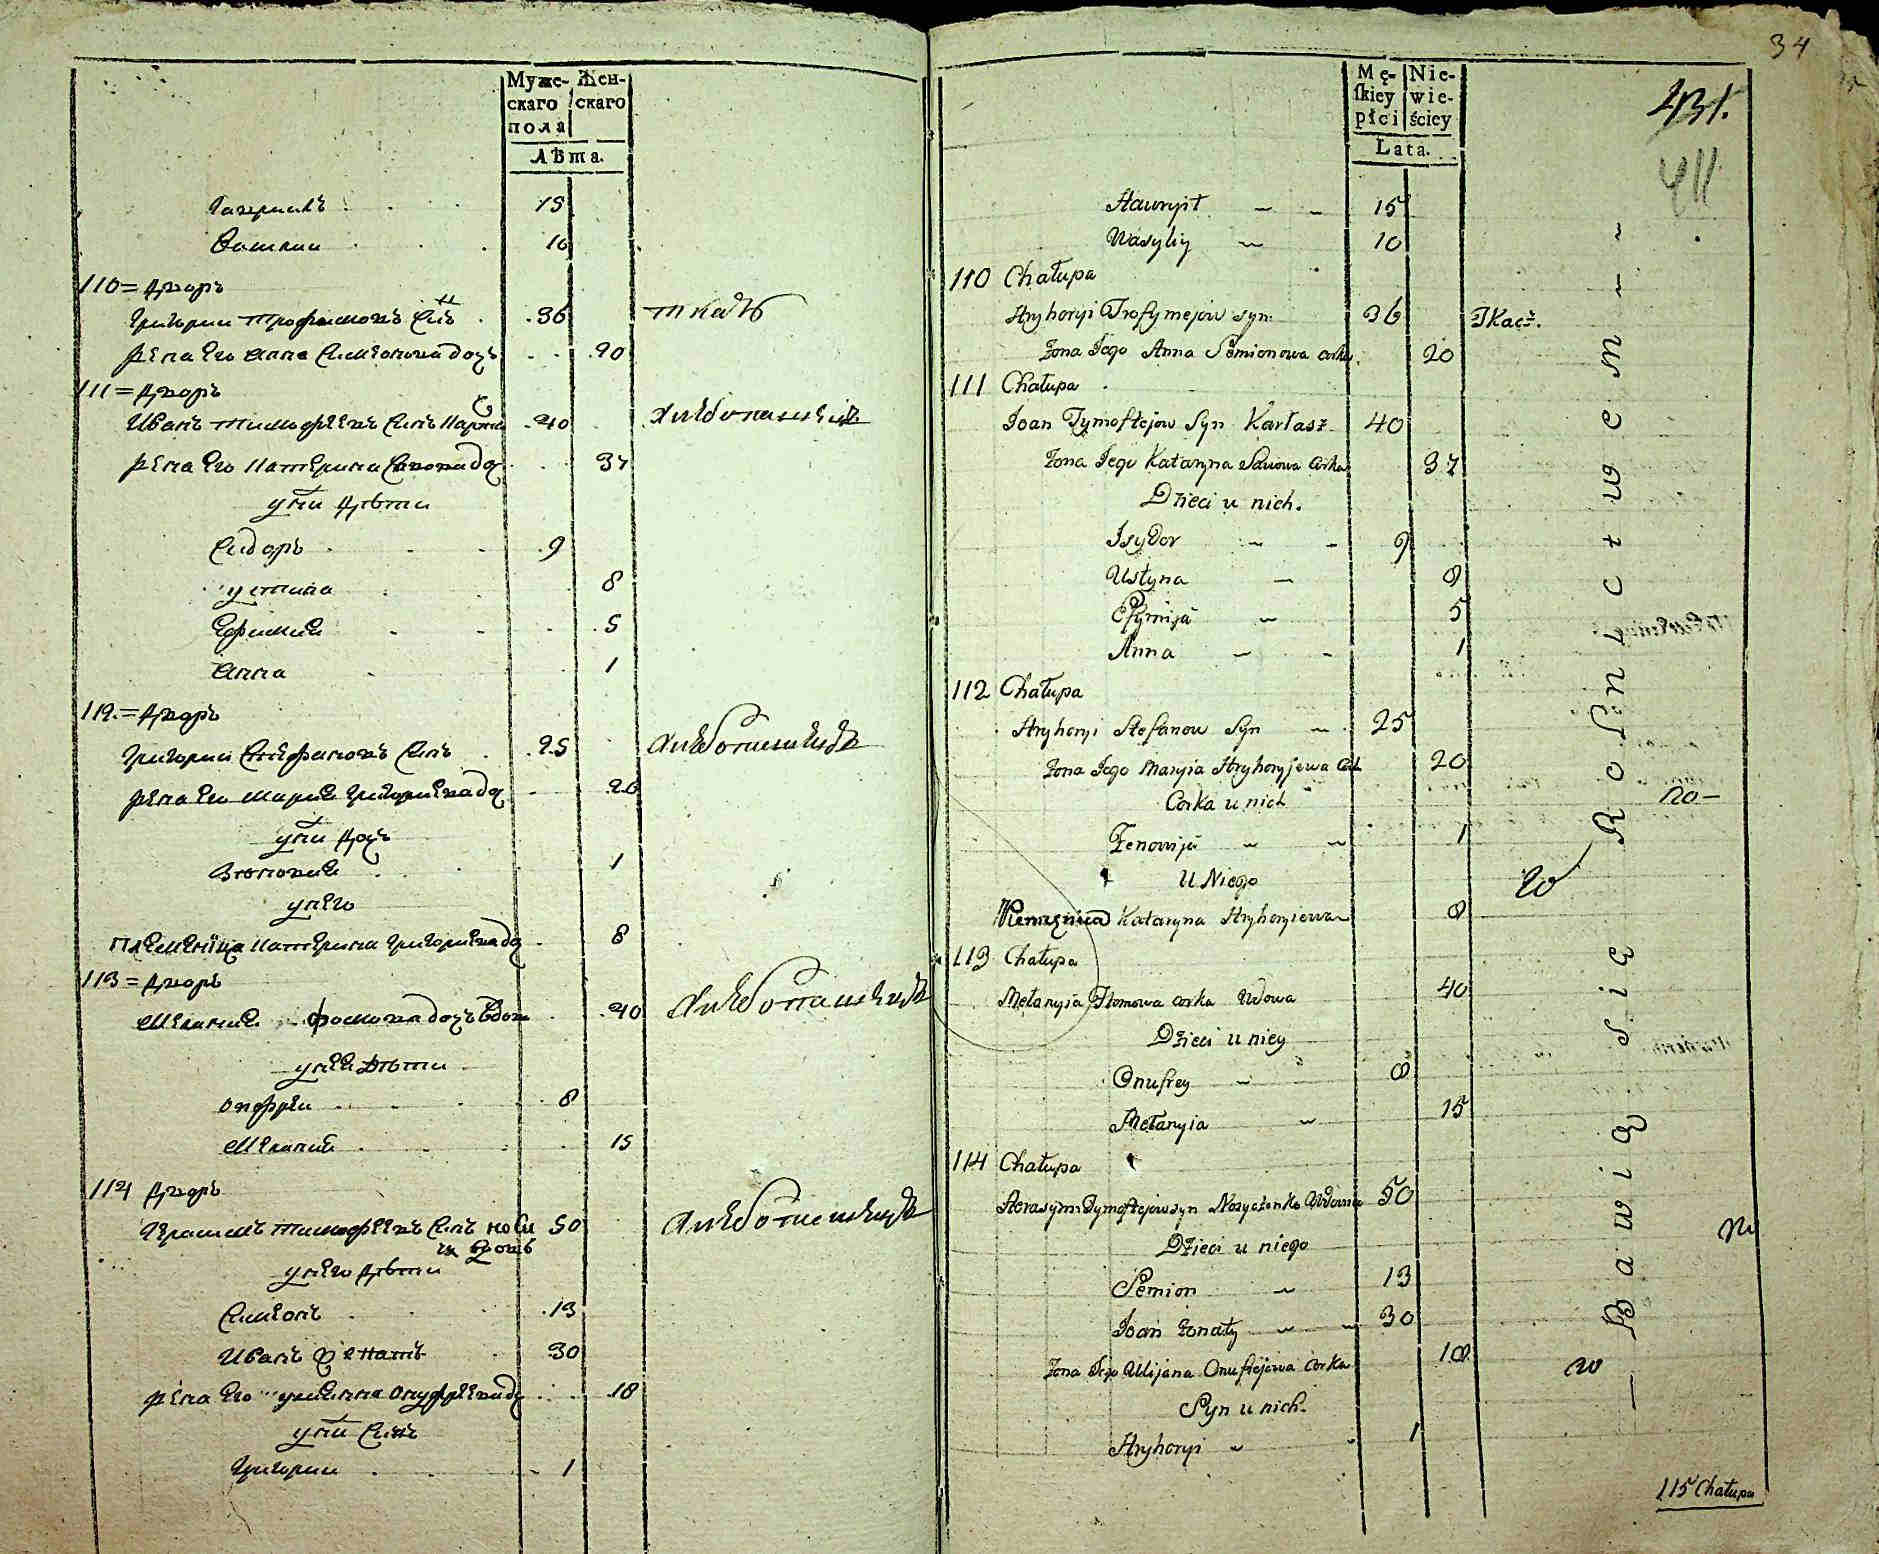 Муже- Жен-
скаго скаго
пола
Лѣта.
Гаврилъ 15
Василий 10
110 = Дворъ
Григорий Трофимовъ Сынъ 36 ткачъ
Жена Его Анна Симеонова дочь 20
111 = Дворъ
Иванъ Тимофѣевъ Сынъ 40 хлѣбопашецъ
Жена Его Катерина Савова доч 37
у них дѣти
Сидоръ 9
Устина 8
Ефимия 5
Анна 1
112. = Дворъ
Григорий Стефановъ Сынъ 25 хлѣбопашецъ
Жена Его Мария Григориева доч 20
у них дочь
Зѣновия 1
у него
племеница Катерина Григориева доч 8
113 = Дворъ
Мелания Фомова дочь вдова 40 хлѣбопашецъ
у ней дѣти
Онофрей 8
Мелания 15
114 Дворъ
Герасимъ Тимофѣевъ Сынъ 50 хлѣбопашецъ
у него дѣти
Симеонъ 13
Иванъ женатъ 30
Жена Его Улиянна Онуфриева доч 18
у них Сынъ
Григорий 1
34
Mę- Nie-
ſkiey wie-
płci ściey
Lata.
431.
411
Hawryił 15
Wasyliy 10
110 Chałupa
Hryhoryi Trofymejow syn 36 Tkacz.
Żona Jego Anna Semionowa corka 20
111 Chałupa
Joan Tymoftejow Syn Karłasz 40
Żona Jego Kataryna Sawowa Corka 37
Dzieci u nich.
Isydor 9
Ustyna 8
Efymija 5
Anna 1
112 Chałupa
Hryhoryi Stefanow Syn 25
Żona Jego Maryia Hryhoryjewa Cor 20
Corka u nich
Zenowija 1
U Niego
Kataryna Hryhoryiewa 8
113 Chałupa
Mełanyia Homowa corka Wdowa 40
Dzieci u niey
Onufrey 8
Mełanyia 15
114 Chałupa
Herasym Tymoftejow syn Nosyczenko Wdowiec 50
Dzieci u niego
Semion 13
Joan Żonaty 30
Żona Jego Ulijana Onufrejewa Corka 18
Syn u nich.
Hryhoryi 1
Bawią się Rolnictwem
115 Chałupa